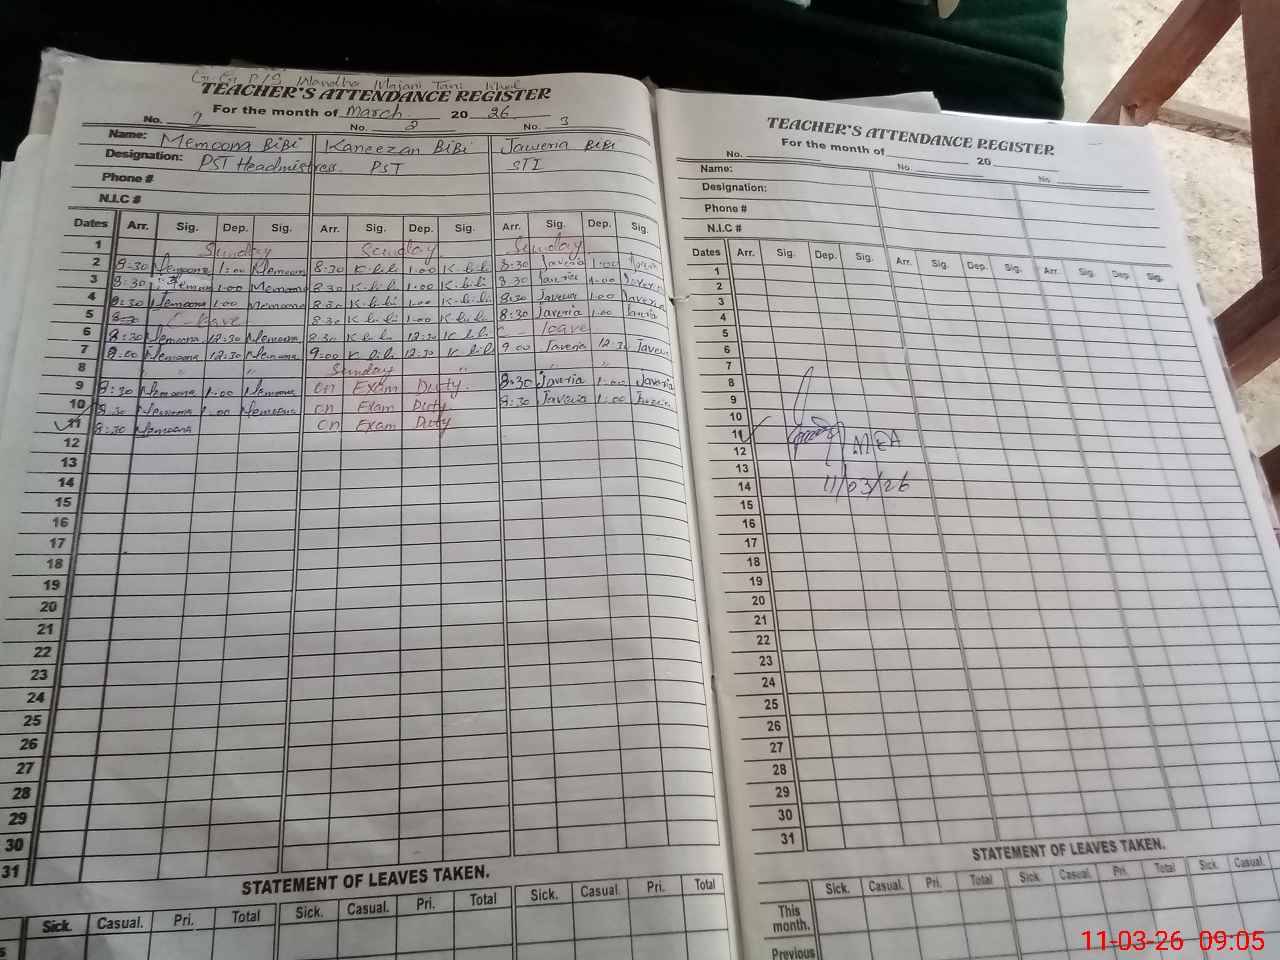 TEACHER'S ATTENDANCE REGISTER
For the month of March 20 26
No. 1 No. 2 No. 3
Name: Memoona BiBi Kaneezan BiBi Javeria BiBi
Designation: PST Headmistress. PST STI
Phone #
N.I.C #
Dates Arr. Sig. Dep. Sig. Arr. Sig. Dep. Sig. Arr. Sig. Dep. Sig.
1 Sunday Sunday Sunday
2 8:30 Memoona 1:00 Memoona 8:30 K-bibi 1:00 K-bibi 8:30 Javeria 1:00 Javeria
3 8:30 Memoona 1:00 Memoona 8:30 K-bibi 1:00 K-bibi 8:30 Javeria 1:00 Javeria
4 8:30 Memoona 1:00 Memoona 8:30 K-bibi 1:00 K-bibi 8:30 Javeria 1:00 Javeria
5 C-leave 8:30 K-bibi 1:00 K-bibi 8:30 Javeria 1:00 Javeria
6 8:30 Memoona 12:30 Memoona 8:30 K-bibi 12:30 K-bibi C - leave
7 9:00 Memoona 12:30 Memoona 9:00 K-bibi 12:30 K-bibi 9:00 Javeria 12:30 Javeria
8 " " Sunday " " "
9 8:30 Memoona 1:00 Memoona on Exam Duty. 8:30 Javeria 1:00 Javeria
10 8:30 Memoona 1:00 Memoona on Exam Duty 8:30 Javeria 1:00 Javeria
11 8:30 Memoona on Exam Duty
12
13
14
15
16
17
18
19
20
21
22
23
24
25
26
27
28
29
30
31
STATEMENT OF LEAVES TAKEN.
Sick. Casual. Pri. Total Sick. Casual. Pri. Total Sick. Casual. Pri. Total
TEACHER'S ATTENDANCE REGISTER
For the month of 20
No. No. No.
Name:
Designation:
Phone #
N.I.C #
Dates Arr. Sig. Dep. Sig. Arr. Sig. Dep. Sig. Arr. Sig. Dep. Sig.
1
2
3
4
5
6
7
8
9
10
11
12 MEA
13
14 11/03/26
15
16
17
18
19
20
21
22
23
24
25
26
27
28
29
30
31
STATEMENT OF LEAVES TAKEN.
Sick. Casual. Pri. Total Sick. Casual. Pri. Total Sick. Casual.
This month.
Previous
11-03-26 09:05